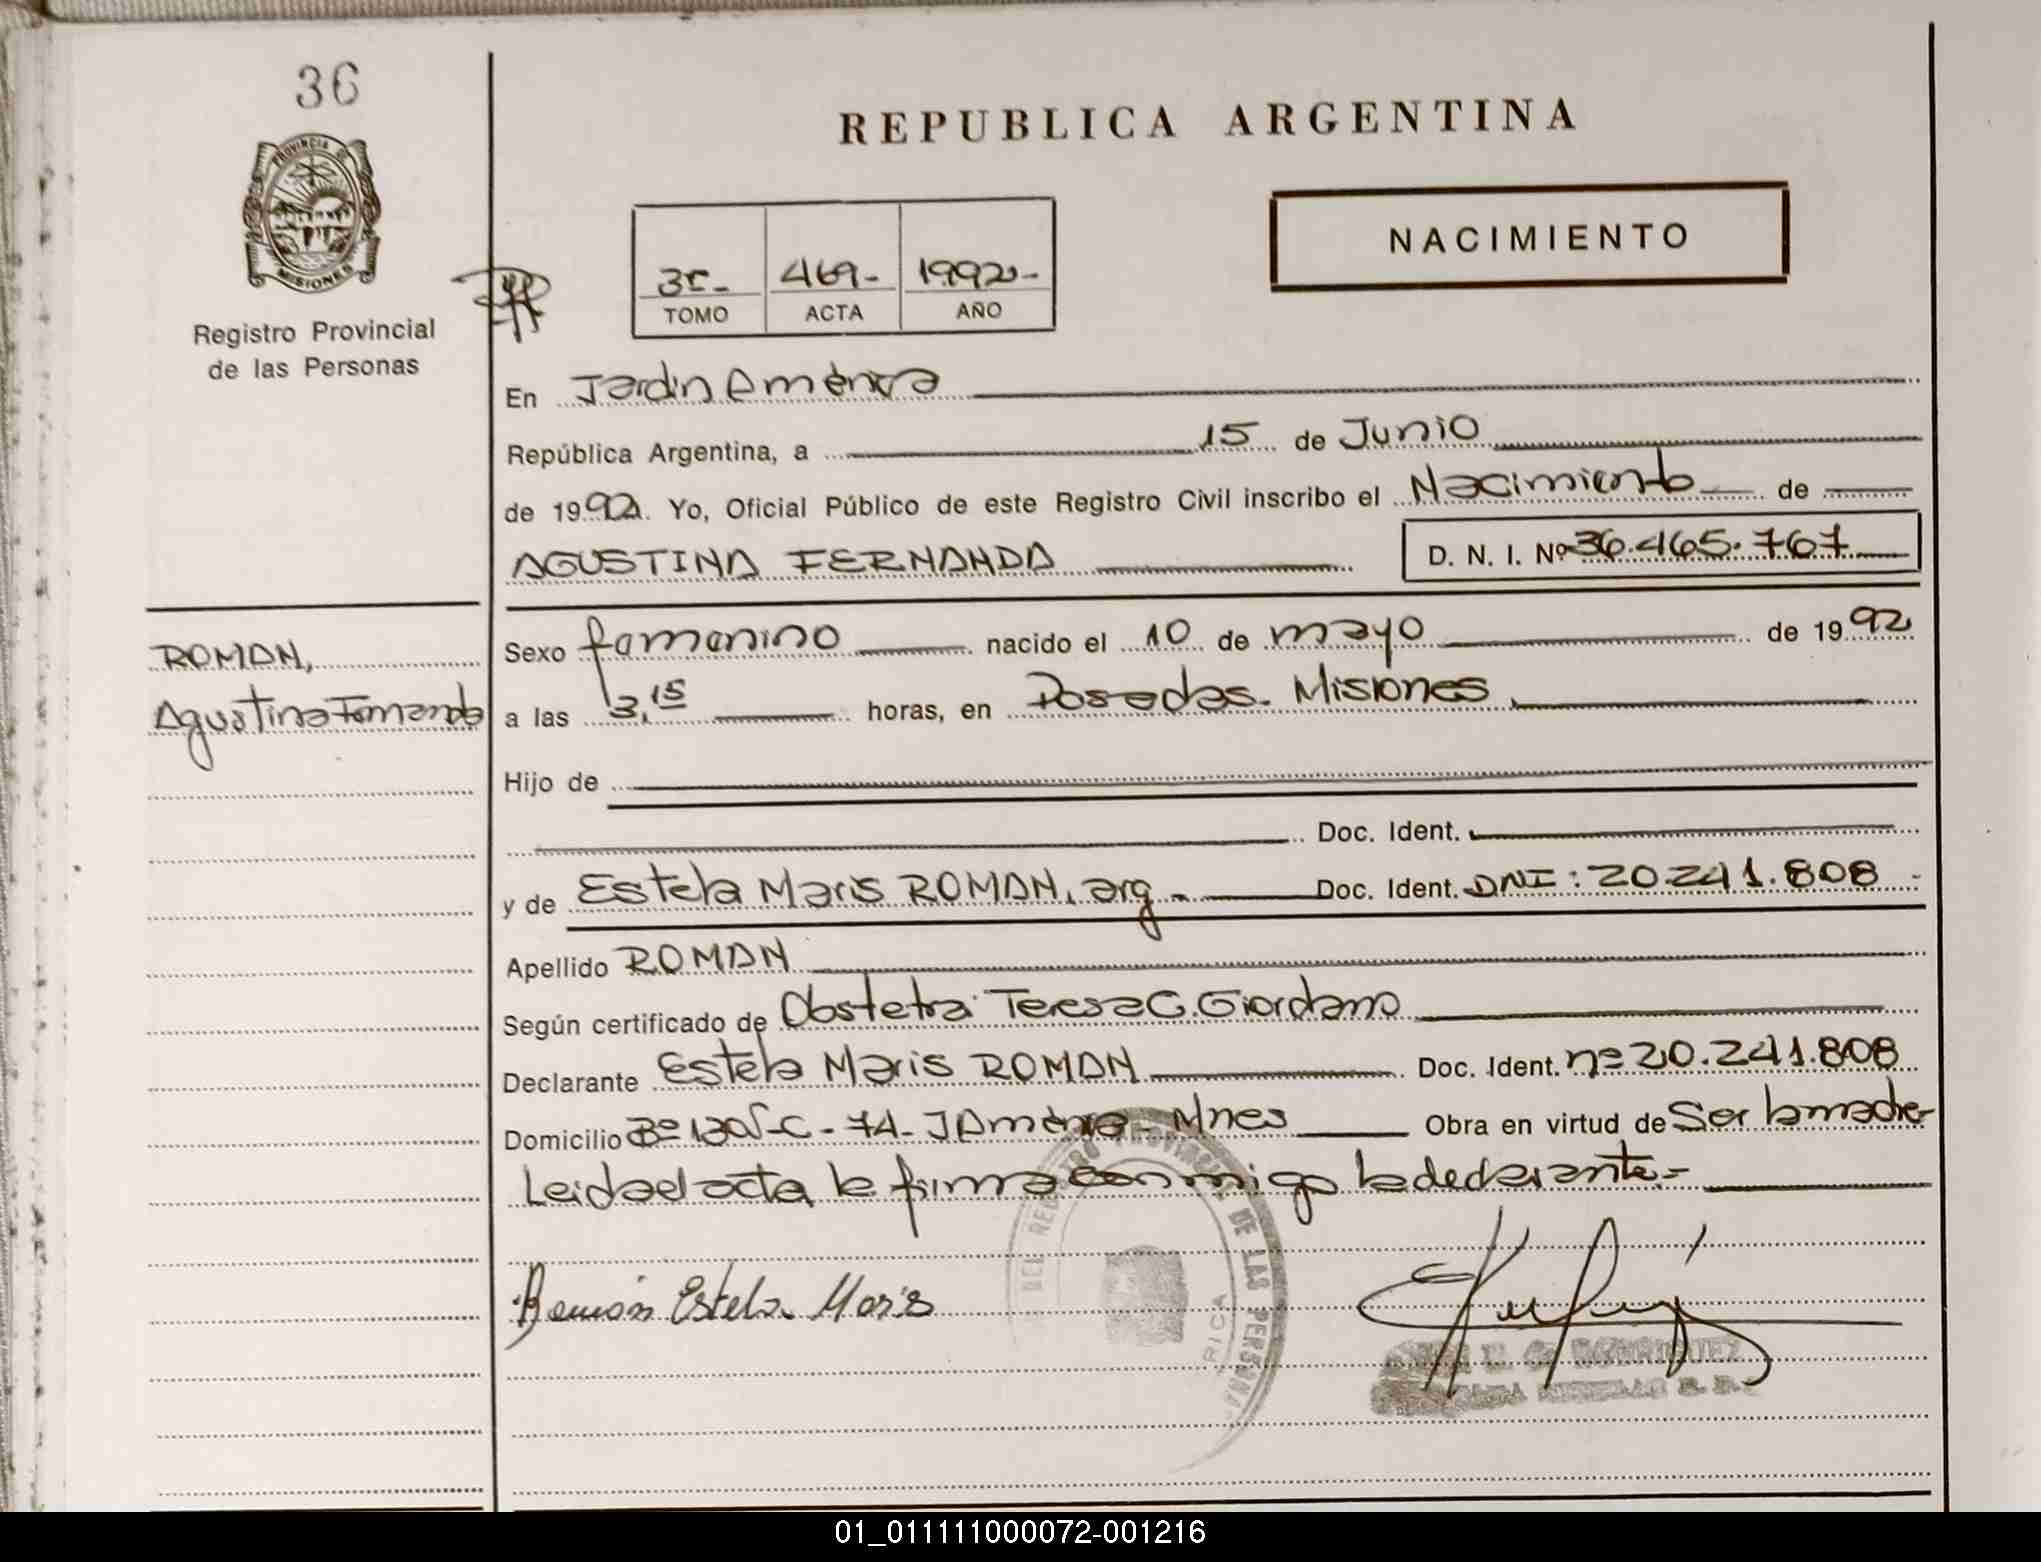 36
REPUBLICA ARGENTINA
PROVINCIA DE
MISIONES
NACIMIENTO
469- 1992-
TOMO ACTA AÑO
Registro Provincial
de las Personas
En Jardin América
República Argentina, a 15 de Junio
de 1992. Yo, Oficial Público de este Registro Civil inscribo el Nacimiento de
AGUSTINA FERNANDA D. N. I. Nº 36.465.767
ROMAN,
Agustina Fernanda
Sexo femenino nacido el 10 de mayo de 1992
a las 13,15 horas, en Posadas. Misiones
Hijo de
Doc. Ident.
y de Estela Maris ROMAN, arg. Doc. Ident. DNI: 20.241.808
Apellido ROMAN
Según certificado de Obstetra Teresa C. Giordano
Declarante Estela Maris ROMAN Doc. Ident. nº 20.241.808
Domicilio Bº C-74-J América-Mnes Obra en virtud de Ser la madre
Leida el acta la firma conmigo la declarante.-
DEL REGISTRO PROVINCIAL DE LAS PERSONAS
Román Estela Maris
RODRIGUEZ
01_011111000072-001216